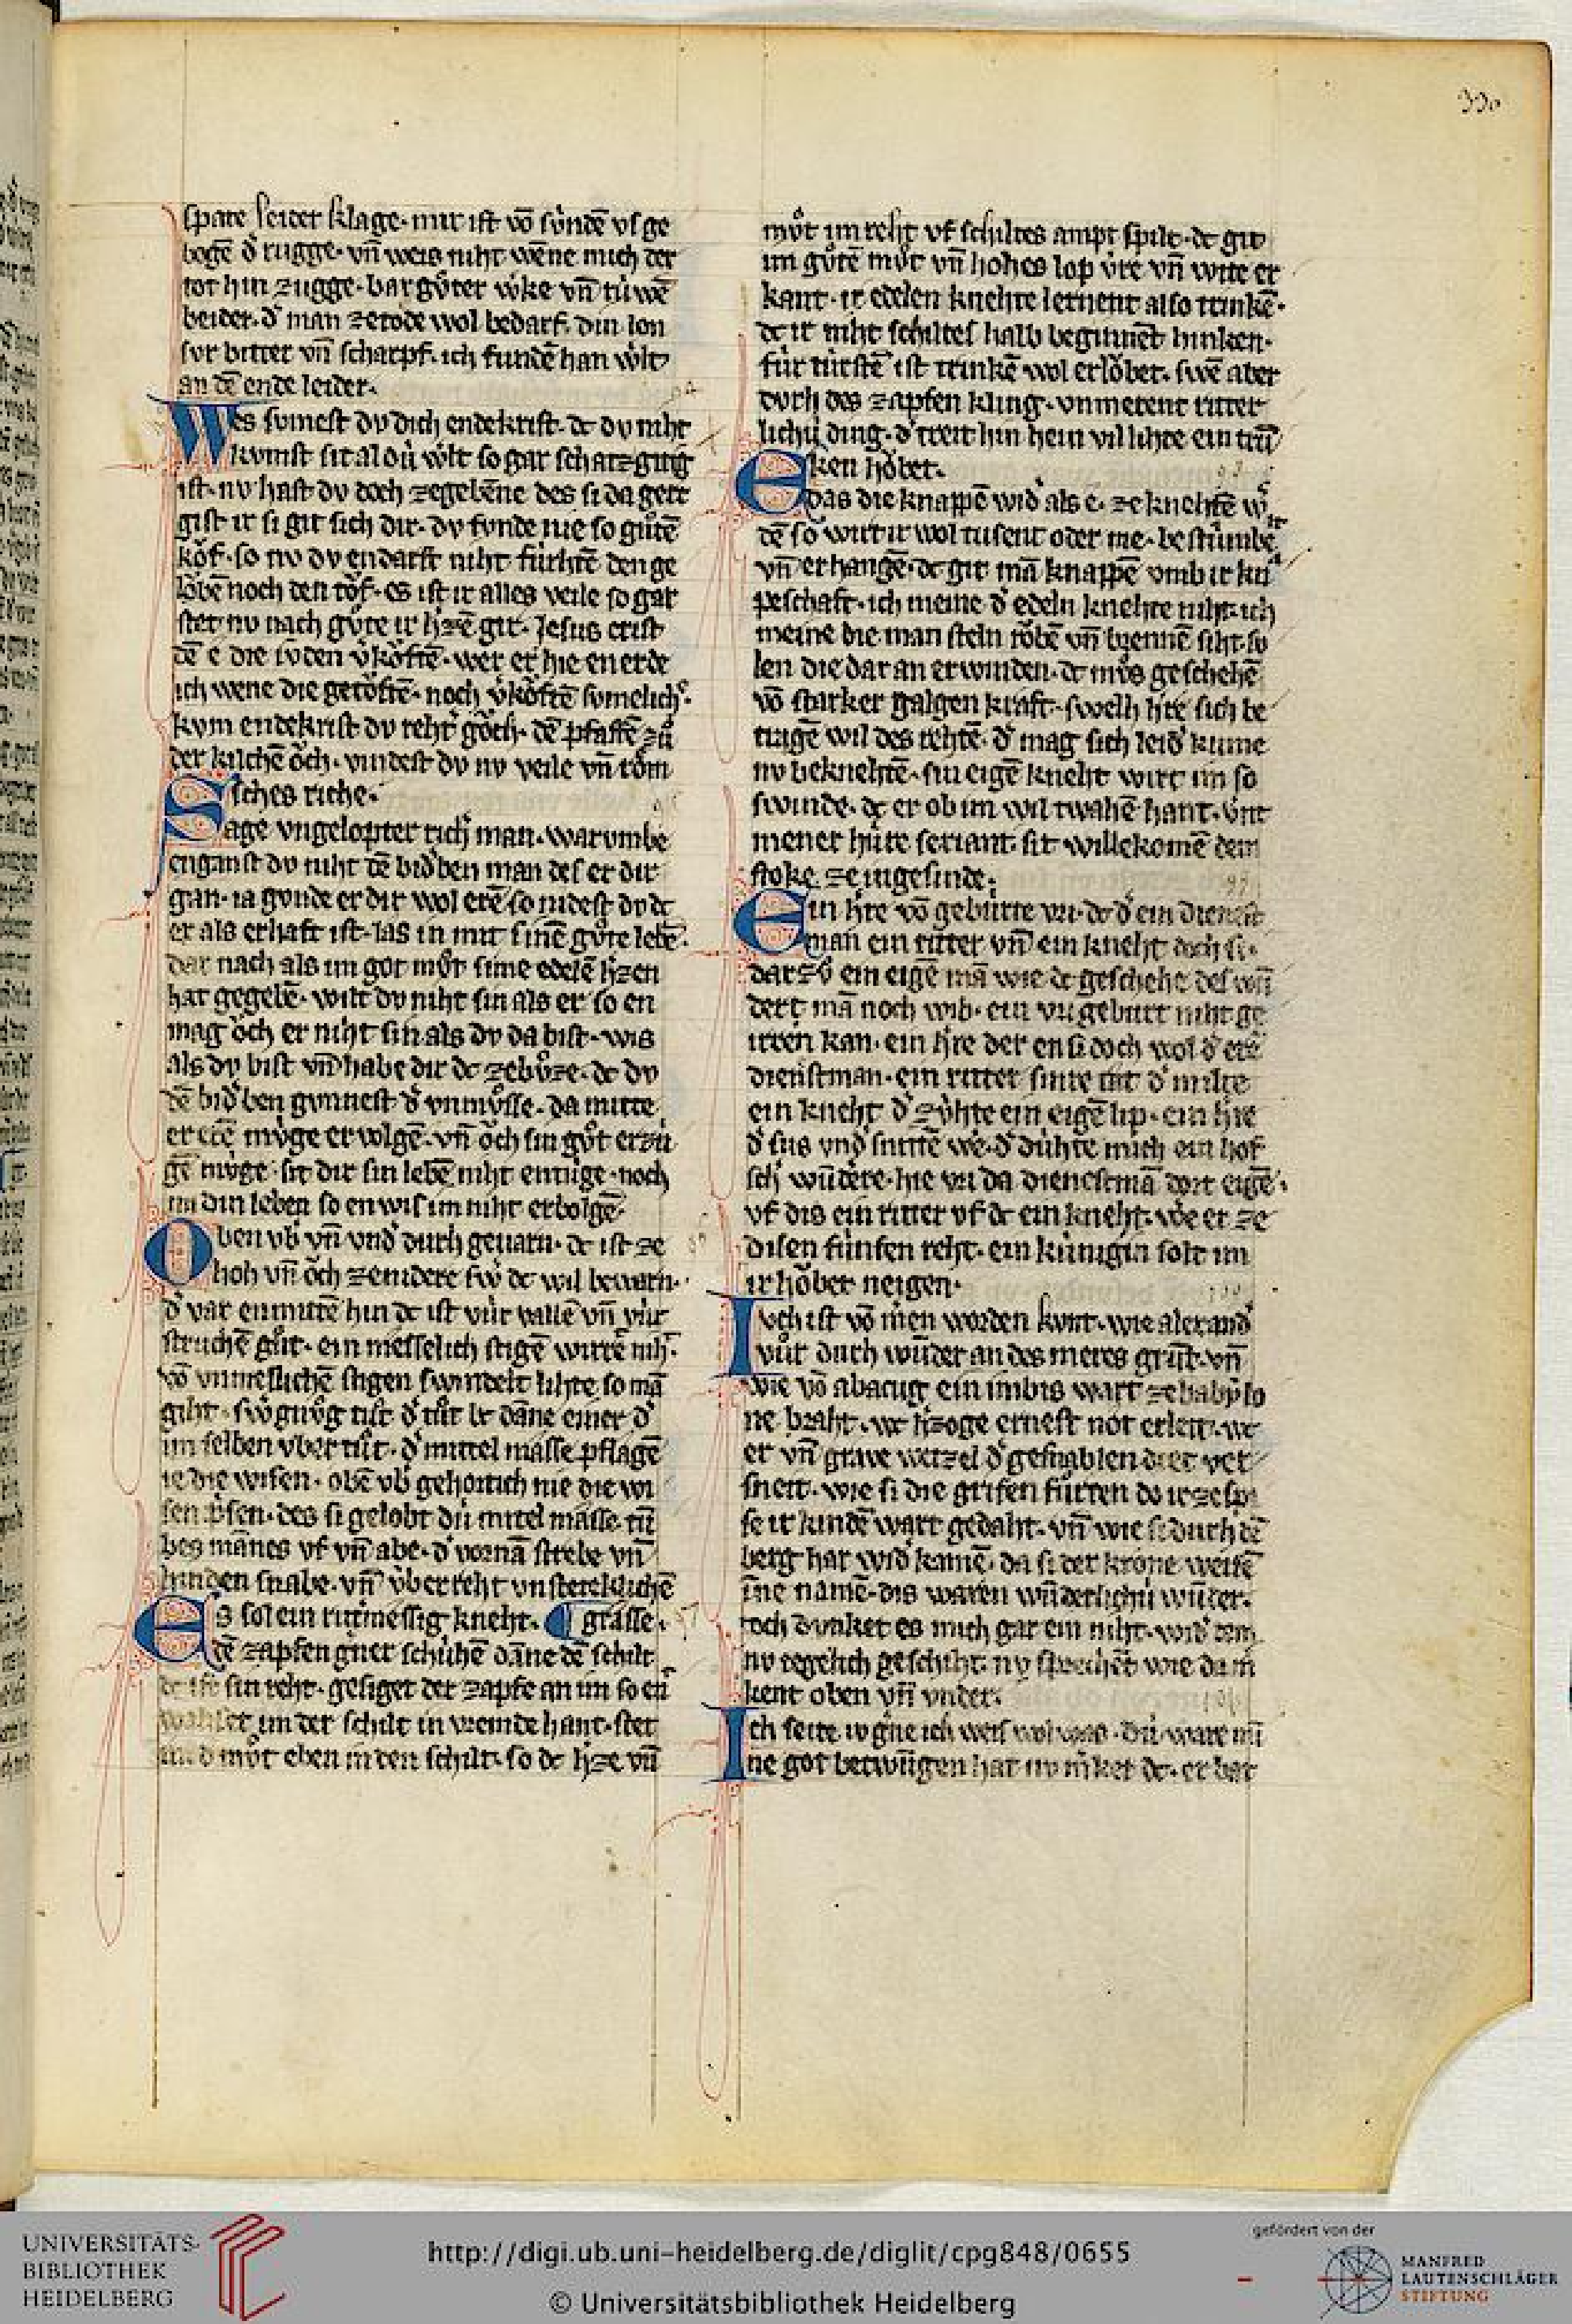 330
spate leider klage· mir ist vō súndē vf ge
bogē d᷎ rugge· vn̄ weis niht wēne mich der
tot hin zugge· bar gůter w᷎ke vn̄ rúwē
beider· d᷎ man ze tode wol bedarf· din lon
svr bitter vn̄ scharpf· ich fundē han w᷎lt
an dē ende leider·
Wes svmest dv dich endekrist· dc dv niht
kvmst sit al dú w᷎lt so gar schatzgitig
ist· nv hast dv doch ze gebēne des si da gert
gist ir si git sich dir· dv fvnde nie so gůtē
kǒf· so nv dv endarft niht fúrhtē den ge
lǒbē noch den tǒf· es ist ir alles veile so gar
stet nv nach gůte ir h᷎zē gir· Jesus crist
dē e die ivden v᷎kǒftē· wer er hie en erde
ich wene die getǒftē· noch v᷎kǒftē svmelich᷎·
kvm endekrist dv reht᷎ gǒch· dē pfaffē zů
der kilchē ǒch· vindest dv nv veile vn̄ rǒm
sches riche·
Sage vngelopter rich᷎ man· war vmbe
enganst dv niht dē bid᷎ben man des er dir
gan· ia gonde er dir wol erē so nidest dv dc
er als erhaft ist· las in mit sinē gůte lebē·
dar nach als im got mům sime edelē h᷎zen
hat gegebē· wilt dv niht sin als er so en
mag ǒch er niht sin als dv da bist· wis
als dv bist vn̄ habe dir dc ze bůze· dc dv
dē bid᷎ben gvnnest d᷎ vnmůsse· da mitte
er erē mvge er volgē· vn̄ ǒch sin gůt erzú
gē mvge· sit dir sin lebē niht entúge· noch
im din leben so en wis im niht erbolgē·
Oben vb᷎ vn̄ vnd᷎ durch gevarn· dc ist ze
hoh vn̄ ǒch ze nidere sw᷎ dc wil bewarn·
d᷎ var enmittē hin dc ist vúr vallē vn̄ vúr
struchē gůt· ein messelich stigē wirret niht·
vō vnmeslichē stigen swindelt lihte so mā
giht· swo gnůg tist d᷎ tůt bc dāne einer d᷎
im selben vber tůt· d᷎ mittel māsse pflagē
ie die wisen· obē vb᷎ gehortich nie die wi
sen p᷎sen· des si gelobt dú mittel māsse· tū
bes mānes vf vn̄ abe· d᷎ vornā strebe vn̄
hinden snabe· vn̄ v́ber reht vnstereklichē
Es sol ein ritmessig kneht· ¶ grasse·
dē zapfen gner schúhē dāne dē schilt
dc ist sin reht· gesiget der zapfe an im so en
wahset im der schilt in vremde hant· stet
im d᷎ můt eben in den schilt· so dc h᷎ze vn̄
můt im reht vf schiltes ampt spilt· dc git
im gůtē můt vn̄ hohes lop v᷎re vn̄ wite er
kant· ir edelen knehte lernent also trinkē·
dc ir niht schiltes halb beginnēt hinken·
fúr túrstē ist trinkē wol erlǒbet· swē aber
dvrh des zapfen kling· vnmerent ritter
lichú ding· d᷎ treit hin hein vil lihte ein trū
ken hǒbet·
E das die knappē wid᷎ als e· ze knehtē w᷎
dē so wirt ir wol tusent oder me· bestúmbelt
vn̄ erhangē· dc git mā knappē vmb ir kna
peschaft· ich meine d᷎ edeln knehte niht· ich
meine die man steln rǒbē vn̄ brennē siht· so
len die dar an erwinden· dc můs geschehē
vō starker galgen kraft· swelh h᷎re sich be
tragē wil des rehtē· d᷎ mag sich leid᷎ kume
nv beknehtē· sin eigē kneht wirt im so
swinde· dc er ob im wil twahē hant· v᷎nt
mener húte seriant· sit willekomē dem
stoke ze ingesinde·
Ein h᷎re vō gebúrte vri· dc d᷎ ein dienest
man ein ritter vn̄ ein kneht doch si·
dar zů ein eigē mā wie dc geschehe des wū
dert mā noch wib· ein vri geburt niht ge
irren kan· ein h᷎re der en si doch wol d᷎ erē
dienstman· ein ritter sinre tat d᷎ milte
ein kneht d᷎ zvhte ein eigē lip· ein h᷎re
d᷎ sus vnd᷎ snittē we· d᷎ dúhte mich ein hof
sch᷎ wūdere· hie vri da dienestmā dort eigē·
vf dis ein ritter vf dc ein kneht· w᷎e er ze
disen fúnfen reht· ein kúnigin solt im
ir hǒbet neigen·
Ivch ist vō m᷎en worden kvnt· wie alexand᷎
vůr durch wūder an des meres grūt· vn̄
wie vō abacuc ein imbis wart ze babylo
ne braht· wc h᷎zoge ernest not erleit· wc
er vn̄ grave wetzel d᷎ gesnablen diet ver
sneit· wie si die grifen fůrten do ir ze spi
se ir kindē wart gedaht· vn̄ wie si durch dē
berg har wid᷎ kamē· da si der krone weisē
īne namē· dis waren wūderlichú wūder·
doch dunket es mich gar ein niht· wid᷎ dem
nv tegelich geschiht· nv sprechēt wie da m᷎
kent oben vn̄ vnder·
Ich seite w gne ich weis wol was· dú ware mī
ne got betwūgen hat nv m᷎ket dc· er bat
UNIVERSITÄTS-
BIBLIOTHEK
HEIDELBERG
http://digi.ub.uni-heidelberg.de/diglit/cpg848/0655
© Universitätsbibliothek Heidelberg
gefördert von der
MANFRED
LAUTENSCHLÄGER
STIFTUNG